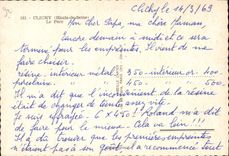 161 - CLICHY (Hauts-de-Seine)
Le Parc
Clichy le 14/3/69
Mon cher Papa, ma chère Maman,
Encore demain à midi et ce sera
terminé pour les empreintes. Il vient de me
faire choisir.
résine : intérieur métal : 350 - intérieur or : 400.
450 : 500.
Il m'a dit que l'inconvénient de la résine
était de changer de teinte assez vite.
Je suis effrayée : 6 x 450 ! Roland m'a dit
de faire pour le mieux. Cela va bien !!!
Il a trouvé que les premières empreintes
n'étaient pas à son goût il a recommencé tout